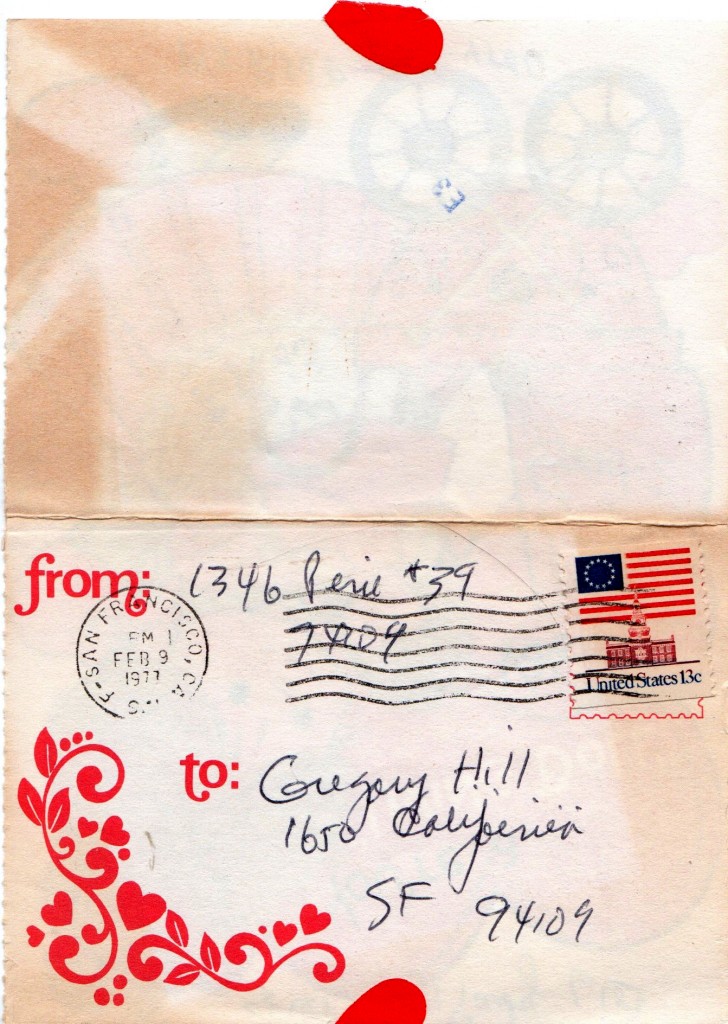 from: 1346 #39
94109
SAN FRANCISCO, CA
PM
FEB 9
1977
United States 13c
to: Gregory Hill
1650 California
SF 94109